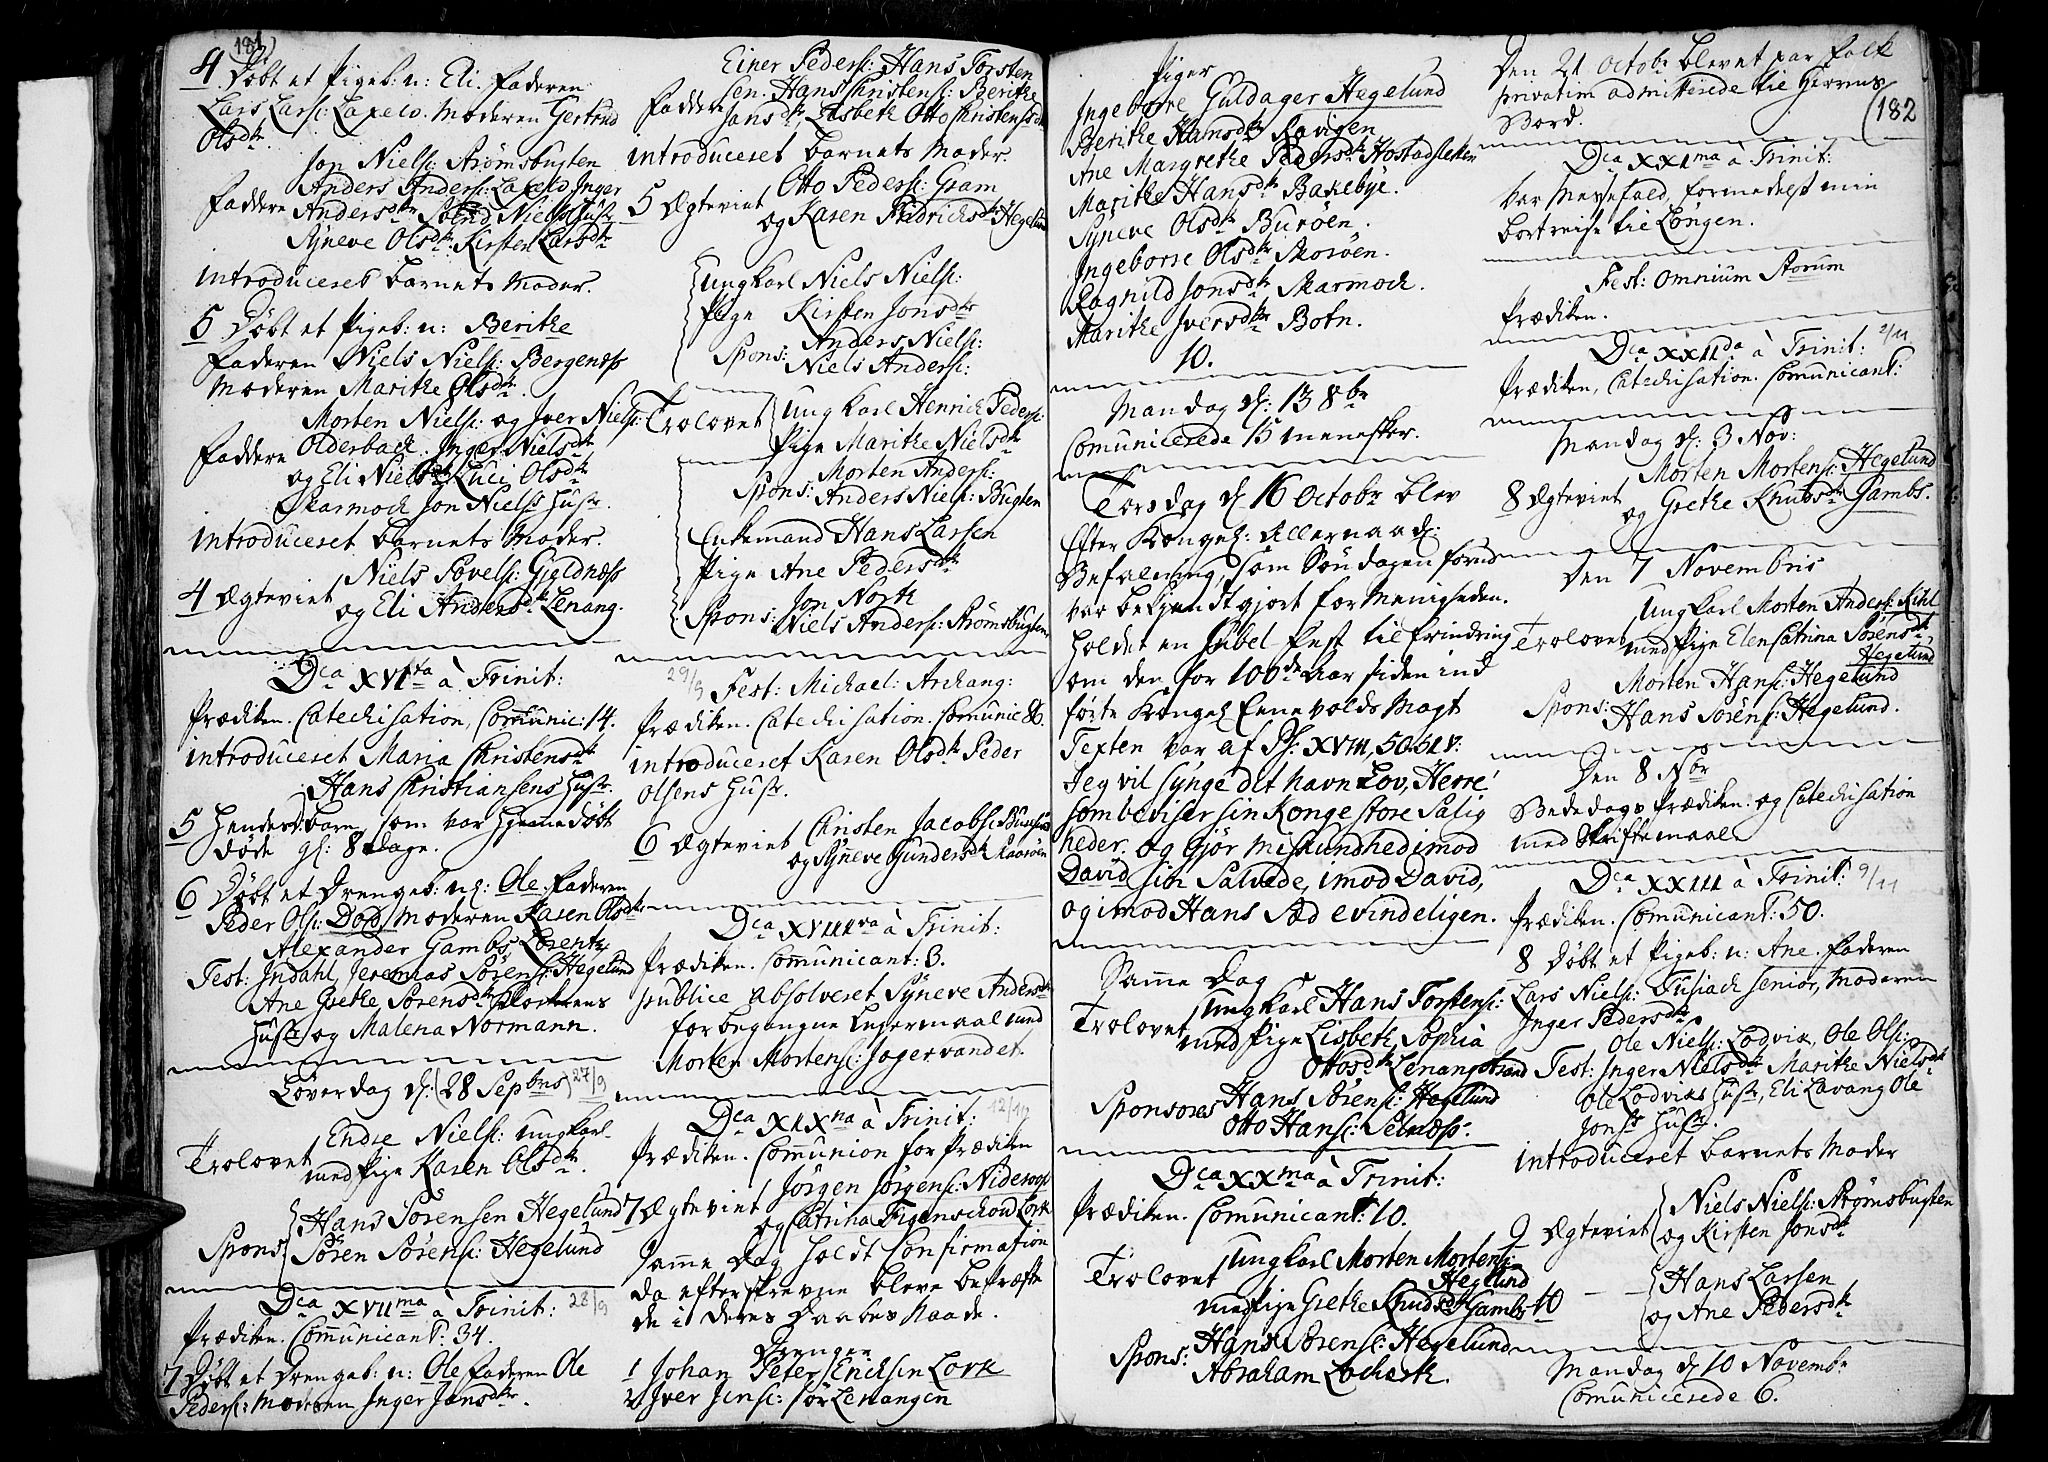 181)
4 Døbt et Pigeb: n: Eli. Faderen
Lars Lars: Laxelv. Moderen Gertrud
Olsdtr
Jon Niels: Strømsbugten
Anders Anders: Laxelv, Inger
Faddere Andersdtr Niels Hustr
Syneve Olsdtr. Kirsten Larsdtr
introduceret barnets Moder.
5 Døbt et Pigeb: n: Berithe
Faderen Niels Niels: Bergenæss
Moderen Marithe Olsdtr.
Morten Niels: og Iver Niels:
Faddere Olderback. Inger Nielsdtr
og Eli Nielsdtr Luci Olsdtr
Skarmock Jon Niels: Hustr.
introduceret barnets Moder.
Niels Povels: Gjeldnæss
4 Ægteviet og Eli Andersdtr Lenang.
Dca XVIta à Trinit:
Prædiken. Catechisation, Communic: 14.
introduceret Maria Christensdtr
Hans Christiansens Hustr.
5 Hendes barn som var hjemmedøbt
døde gl: 8 Dage.
6 Døbt et Drengeb: n: Ole. Faderen
Peder Ols: Dods, Moderen Karen Olsdtr
Alexander Gambs, Lorentz
Test: Indahl, Jeremias Sørens: Hegelund
Ane Grethe Sørensdtr Klockerens
Hustr og Malena Normann.
Løverdag d: (28 Septbris) 27/9
Endre Niels: ungkarl
Trolovet med Pige Karen Olsdtr.
Spons: Hans Sørensen Hegelund
Søren Sørens: Hegelund
Dca XVIIma à Trinit: 28/9
Prædiken. Communicant: 34.
7 Døbt et Drengeb: n: Ole Faderen Ole
Peders: Moderen Inger Jansdtr.
Einer Peders: Hans Torsten
sen. Hans Christens: Berithe
Faddere Jansdtr, Lisbeth Otto Christensdtr
introduceret barnets Moder
Otto Peders: Gram
5 Ægteviet og Karen Fridrichsdtr Hegelund
Ungkarl Niels Niels:
Pige Kirsten Jonsdtr
Anders Niels:
Spons: Niels Anders:
Trolovet Ungkarl Henrich Peders:
Pige Marithe Nielsdtr
Morten Anders:
Spons: Anders Niels: Bugten
Enkemand Hans Larsen
Pige Ane Pedersdtr
Jon North
Spons: Niels Anders: Strømsbugten
29/9 Fest: Michael: Archang:
Prædiken. Catechisation. Comunic 26.
introduceret Karen Olsdtr Peder
Olsens Hustr.
Christen Jacobs:
6 Ægteviet og Syneve Gundersdtr Maarsøen
Dca XVIIIva à Trinit:
Prædiken. Communicant: 3.
publice absolveret Syneve Andersdtr
for begangne Leiermaal med
Morten Mortens: Jægervandet.
Dca XIXna à Trinit: 12/10
Prædiken. Communion for Prædiken
Jörgen Jörgens: Nidevogl
7 Ægteviet og Catrina Figenschou Lork
Samme Dag holdt Confirmation
da efterskrevne bleve bekræfte
de i deres Daabes Naade.
Drenge
1 Johan Peter Erichsen Lork
2 Iver Jens: Sørlenangen
Piger
Ingeborre Guldager Hegelund
Berithe Hansdtr Ravigen
Ane Margrethe Pedersdtr Hostadsletten
Marithe Hansdtr Bakebye.
Syneve Olsdtr Burøen.
Ingeborre Olsdtr Skorøen.
Ragnild Jonsdtr Skarmock.
Marithe Iversdtr Botn.
10.
Mandag d: 13 8br
Comunicerede 15 mennesker.
Torsdag d: 16 Octobr blev
efter Kongel: allernaad:
Befalning, som Søndagen forud
var bekjendtgjort for Menigheden.
holdet en Jubel Fest til Erindring
om den for 100de Aar siden ind
førte Kongel: Eenevolds Magt
Texten var af Ps: XVIII, 50.51 v:
Jeg vil synge dit navn Lov, Herre!
som beviser sin Konge store Salig
heder. og gjør miskundhed imod
David sin Salvede, imod David,
og imod Hans Sæd evindeligen.
Samme Dag
Ungkarl Hans Torstens:
Trolovet med Pige Lisbeth Sophia
Ottosdtr Lenangstrand
Sponsores Hans Sörens: Hegelund
Otto Hans: Selnæss:
Dca XXma à Trinit:
Prædiken. Comunicant: 10.
Ungkarl Morten Mortens:
Trolovet Heglund
med Pige Grethe Knudsdtr Gambs
Spons: Hans Sörens: Hegelund
Abraham Lockert.
Den 21 Octobr blevet par Folk
privatim admitterede til Herrens
Bord.
(182
Dca XXIma à Trinit:
var Messefald formedelst min
bortreise til Longen.
Fest: Omnium Storum
Prædiken.
Dca XXIIda à Trinit: 2/11
Prædiken, Catechisation. Comunicant:
Mandag d: 3 Nov:
Morten Mortens: Hegelund
8 Ægteviet og Grethe Knudsdtr Gambs.
Den 7 Novembris
Ungkarl Morten Anders: Kihl
Trolovet med Pige Elen Catrina Sörensdtr
Hegelund
Morten Hans: Hegelund
Spons: Hans Sörens: Hegelund.
Den 8 Nor
Bededags Prædiken. og Catechisation
med Skriftemaal
Dca XXIII à Trinit: 9/11
Prædiken. Comunicant: 50.
8 Døbt et Pigeb: n: Ane. Faderen
Lars Niels: Tusiach senior, Moderen
Inger Pedersdtr.
Ole Niels: Lodvik, Ole Ols:
Test: Inger Nielsdtr Marithe Nielsdtr
Ole Lodviks Hustr, Eli Lavang Ole
Jons: Hustr.
introduceret barnets Moder
Niels Niels: Strømsbugten
9 Ægteviet og Kirsten Jonsdtr
10 — — Hans Larsen
og Ane Pedersdtr
Mandag d: 10 Novembr
Comunicerede 6.